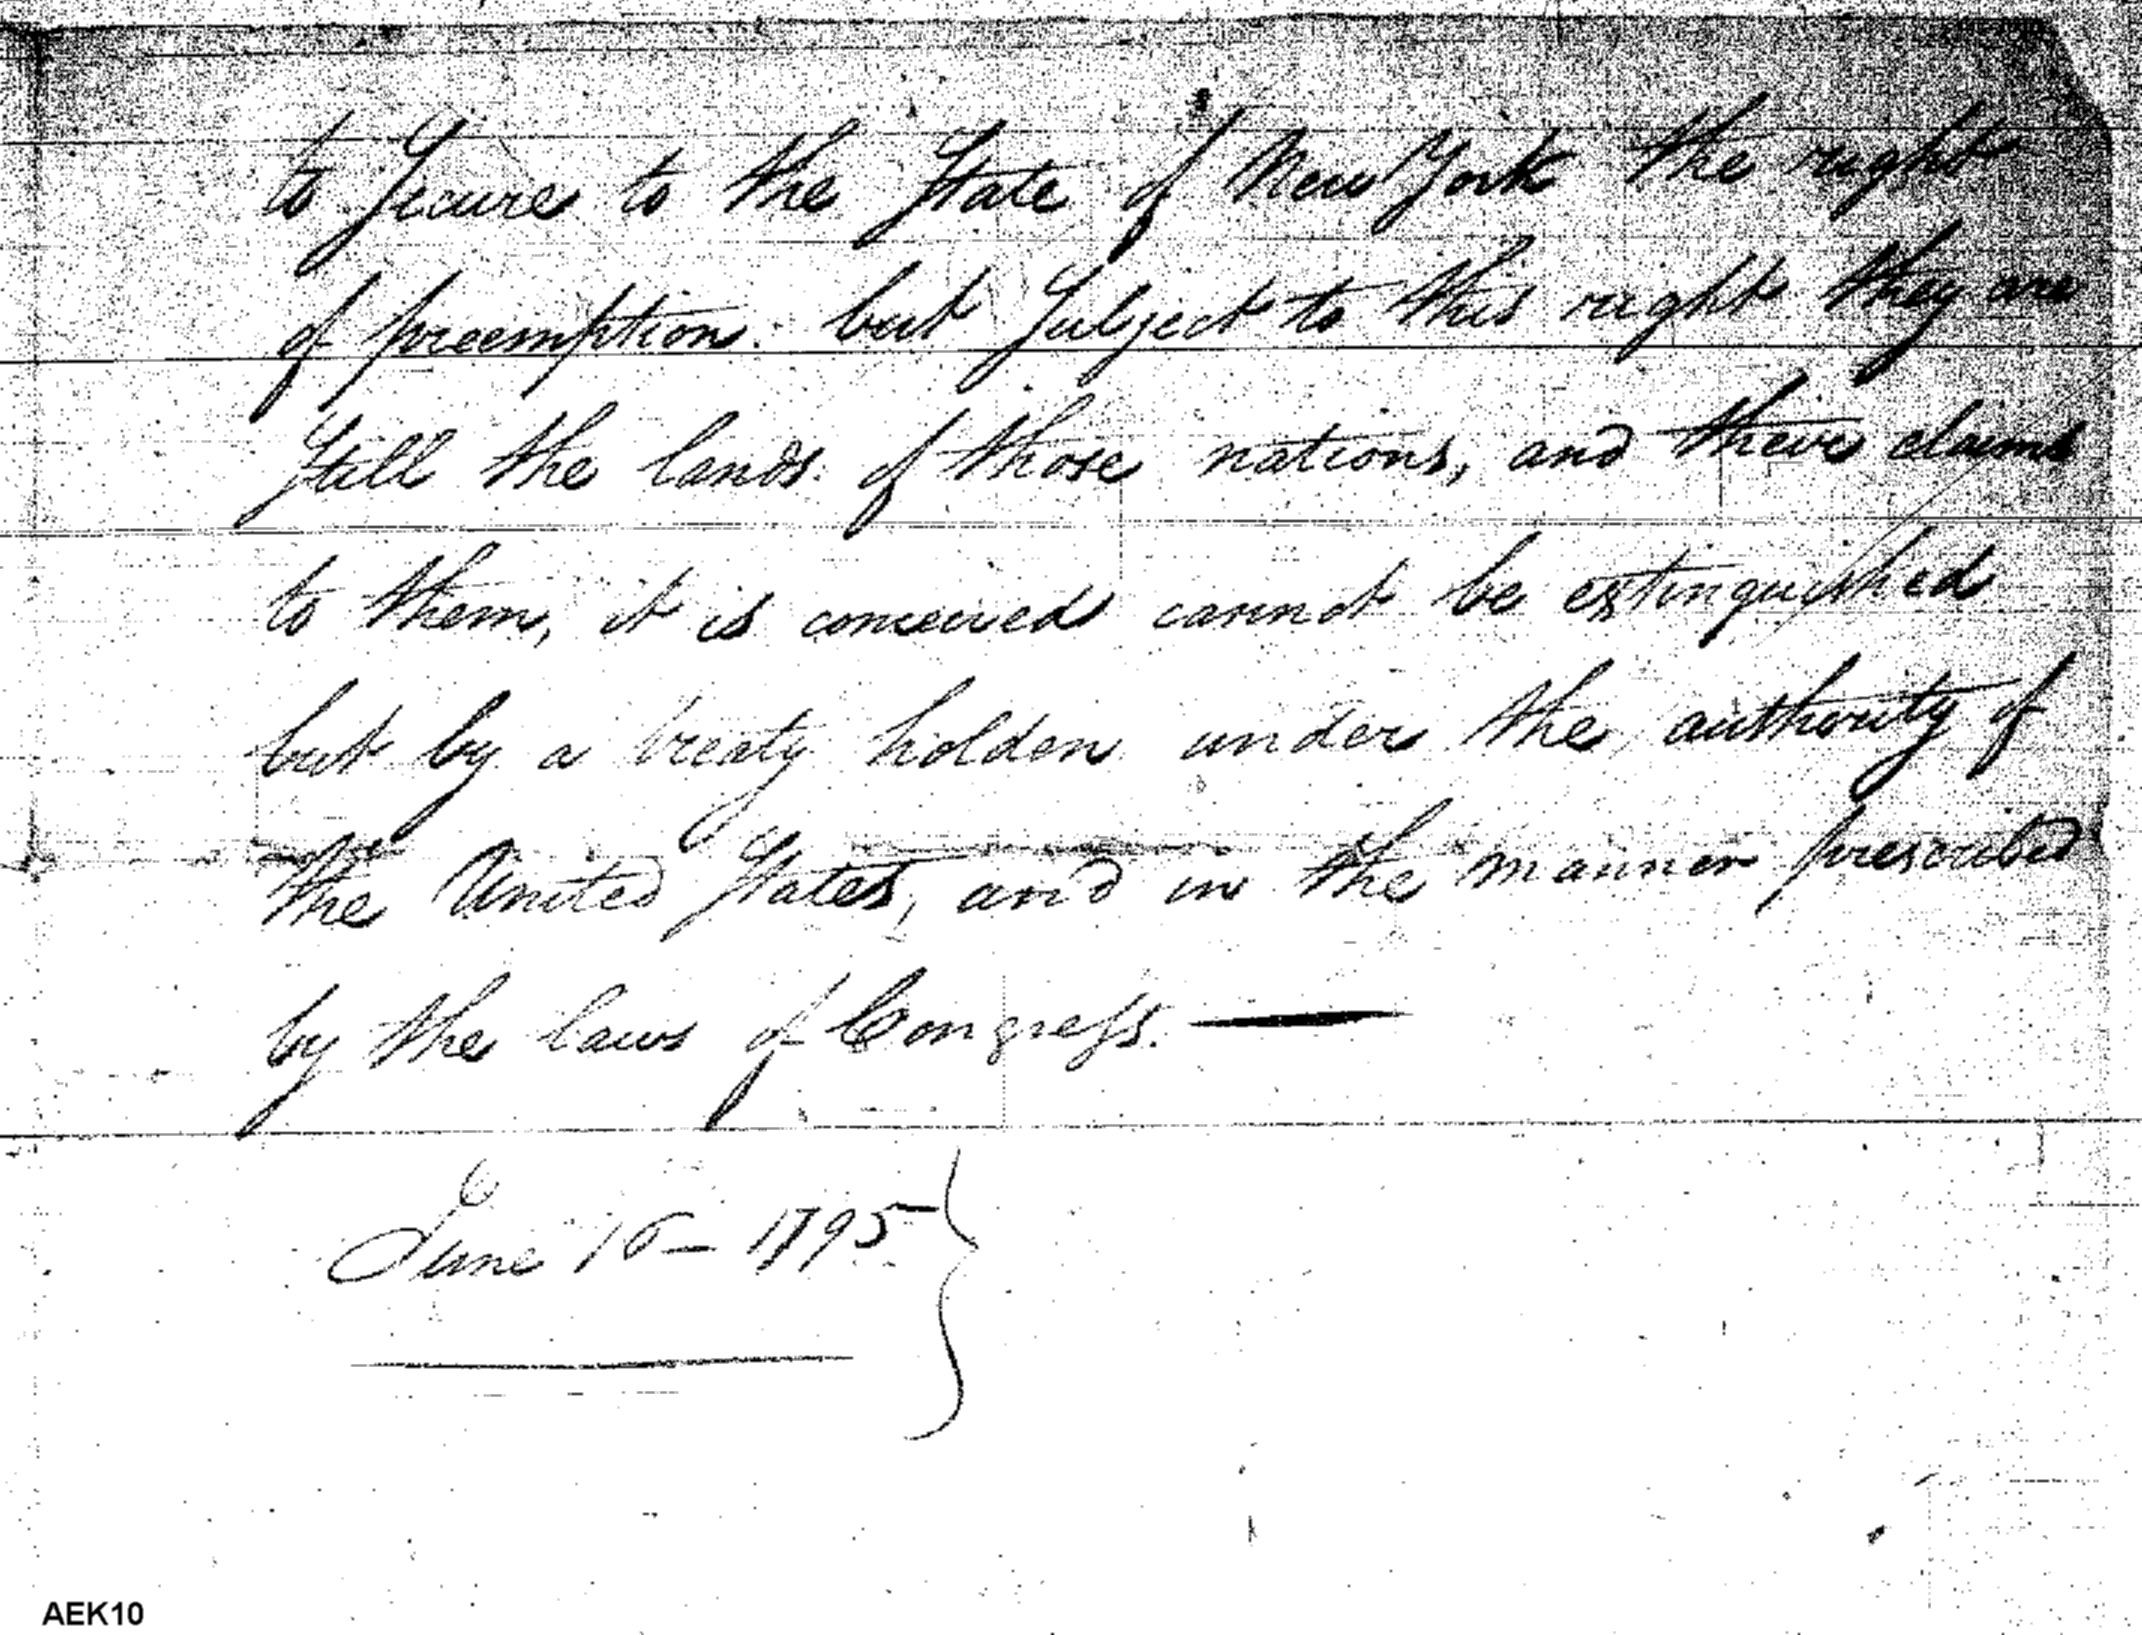 to Secure to the State of New York the right
of preemption. but Subject to this right they are
Still the lands of those nations, and their claims
to them, it is conceived cannot be extinguished
but by a treaty holden under the authority of
the United States, and in the manner prescribed
by the laws of Congress. —
June 16 — 1795
AEK10